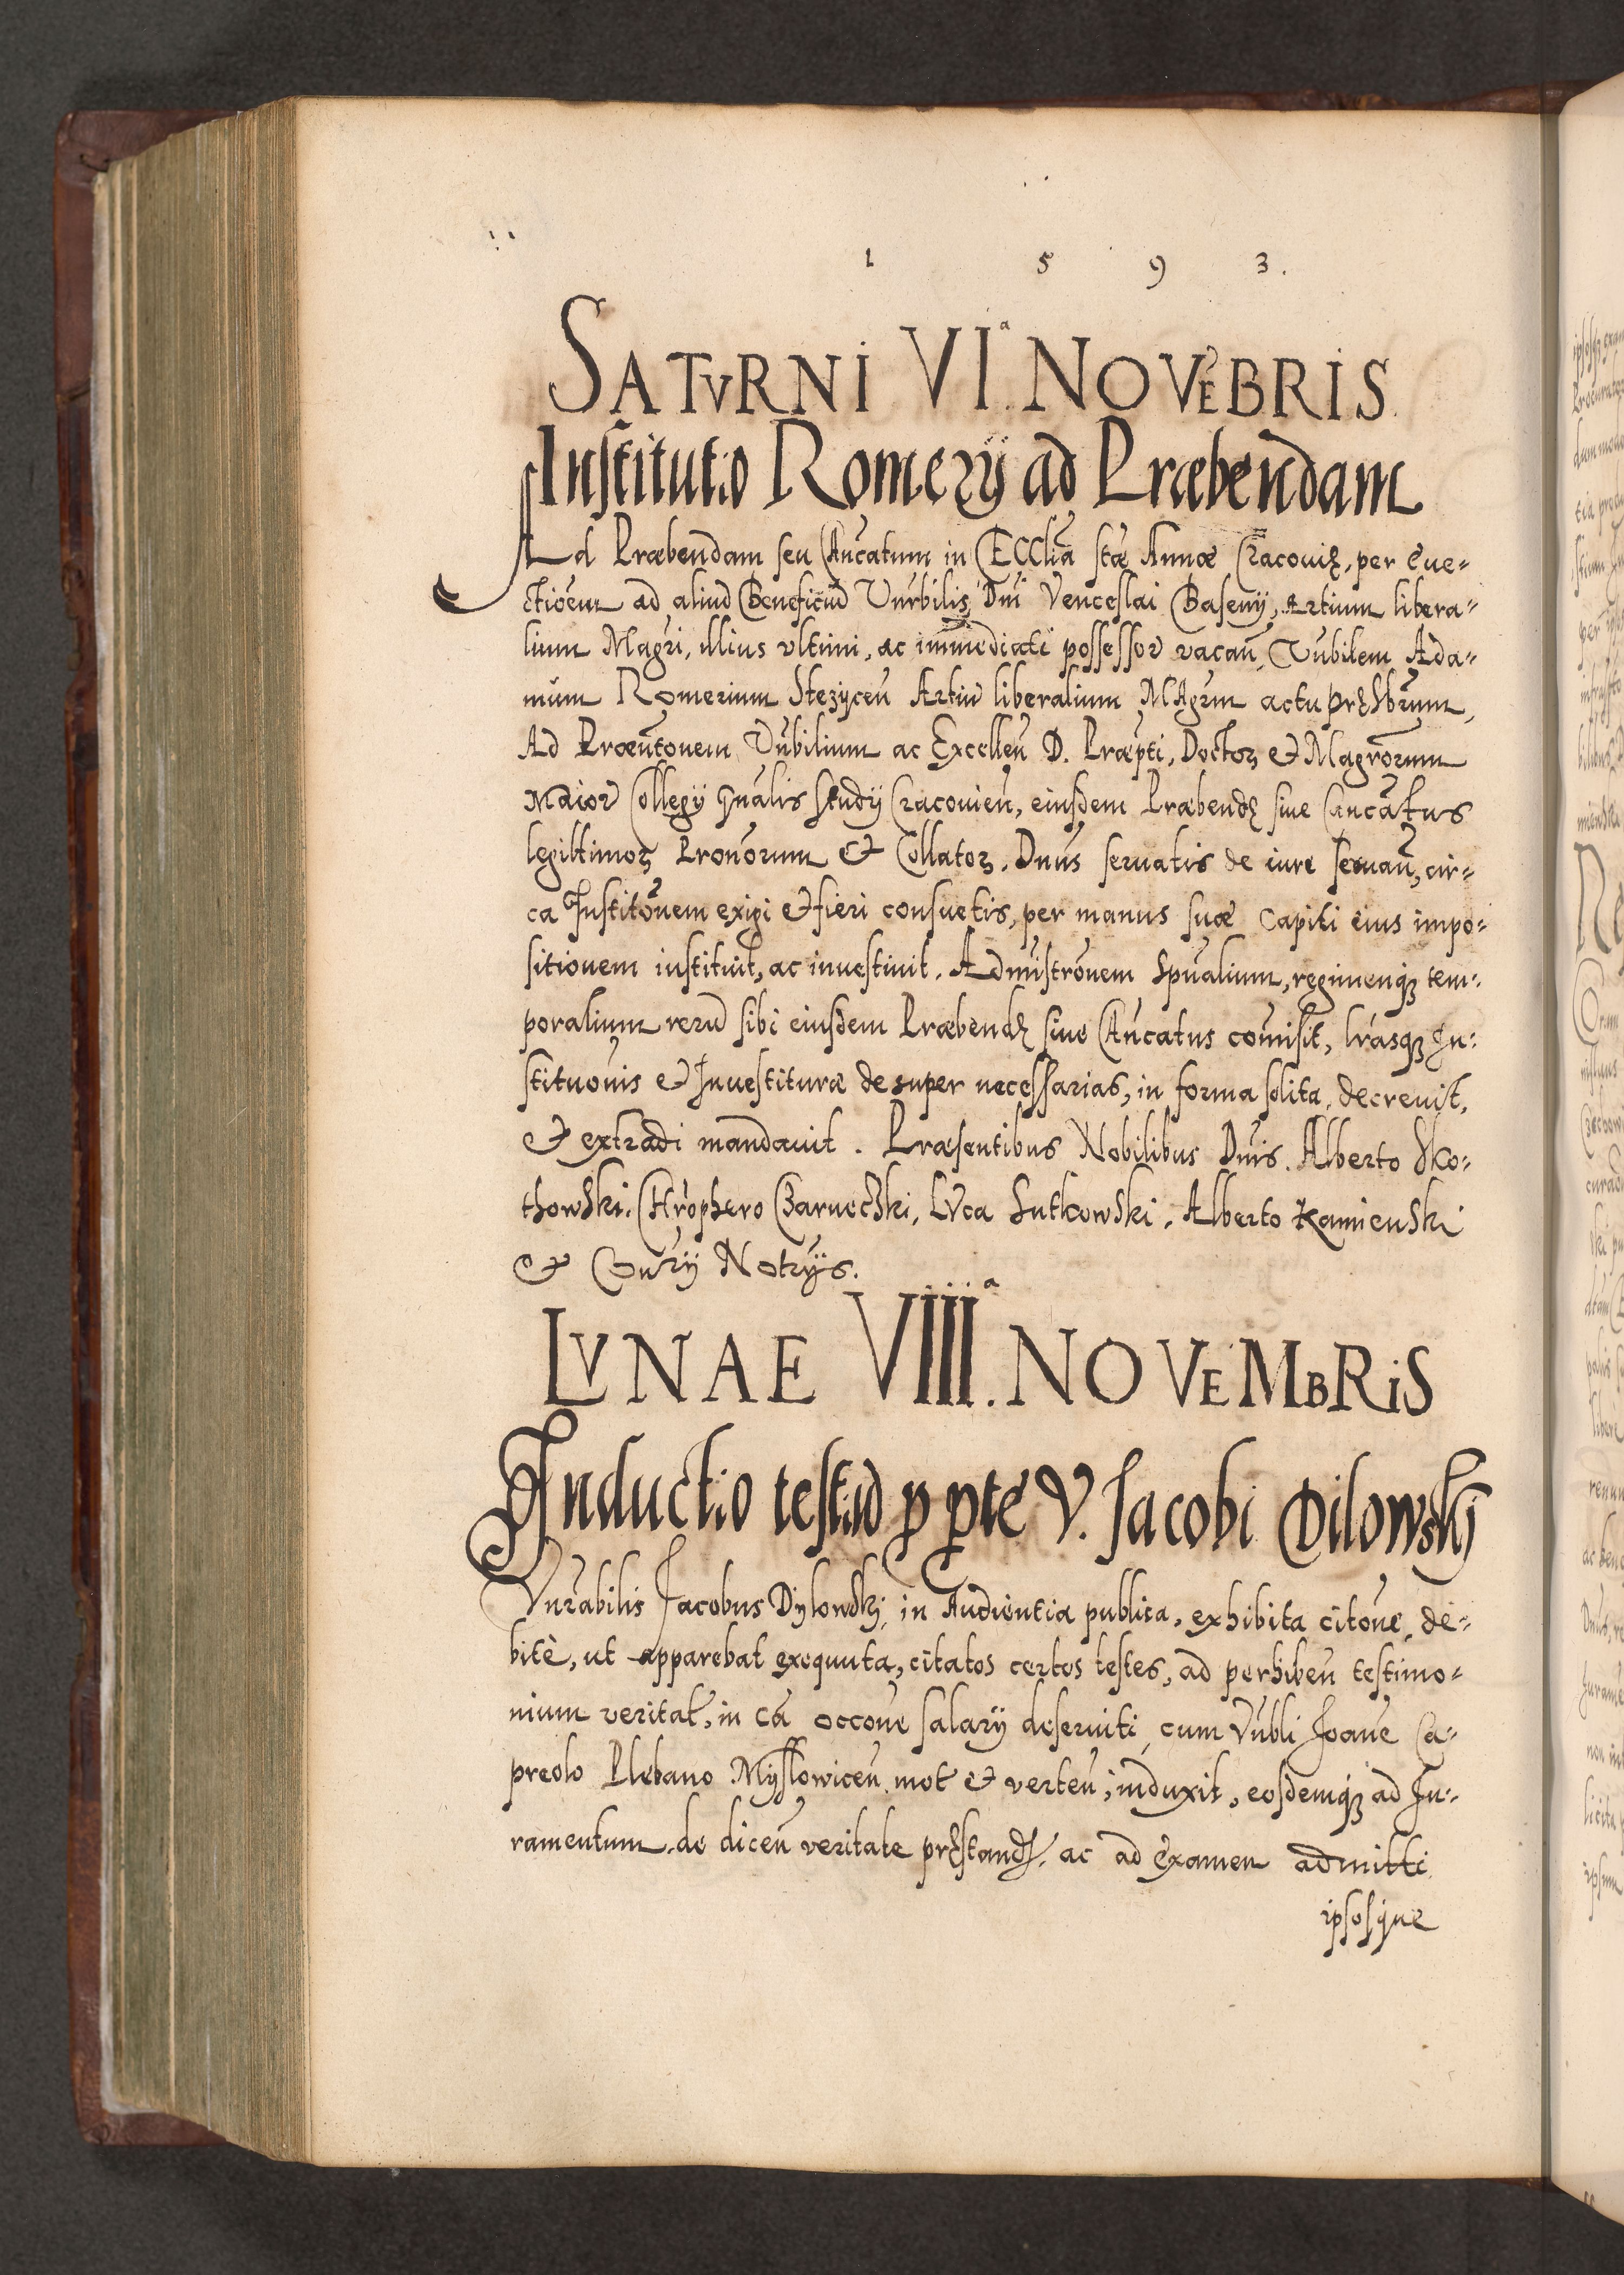 1 5 9 3.
SATVRNI VIª. NOVEBRIS
Institutio Romerÿ ad Præbendam
Ad Præbendam seu Cancatum in Ecclia stæ Annæ Cracouię, per eue-
ctioem ad aliud Beneficiu Vnrbilis Dni Venceslai Basenÿ, Artium libera-
lium Magri, illius vltimi, ac immediati possessor vacan, Vnbilem Ada-
mum Romerium Stezÿcen Artiu liberalium MAgrm actu pręsbrum,
Ad Præntonem Vnbilium ac Excellen D. Præpti, Doctoꝝ et Magrorum
Maior Collegÿ Gnalis Studÿ Cracouien, eiusdem Præbendę siue Cancatus
legittimoꝝ Pronorum et Collatoꝝ. Dnus seruatis de iure seruan, cir-
ca Institonem exigi et fieri consuetis, per manus suæ capiti eius impo-
sitionem instituit, ac inuestiuit. Admistronem Spualium, regimenqꝫ tem-
poralium reru sibi eiusdem Præbendę siue Cancatus comisit, lrasqꝫ In-
stituonis et Inuestituræ desuper necessarias, in forma solita, decreuit,
et extradi mandauit. Præsentibus Nobilibus Dnis. Alberto Sko-
thowski. Chrophero Czarnecki, LVca Sutkowski. Alberto Kamienski
et Conrÿ Notrÿs.
LVNAE VIIIIª. NOVEMBRIS
Inductio testiu p pte V. Jacobi Dilowskj
Vnrabilis Jacobus Dÿlowskj in Audientia publica, exhibita citone, de-
bitè, ut apparebat exequuta, citatos certos testes, ad perhiben testimo-
nium veritat, in ca occone salarÿ deseruiti, cum Vnbli Joane Ca-
preolo Plebano Mÿslowicen mot et verten, induxit, eosdemqꝫ ad Iu-
ramentum de dicen veritate pręstandę, ac ad examen admitti
ipsosque